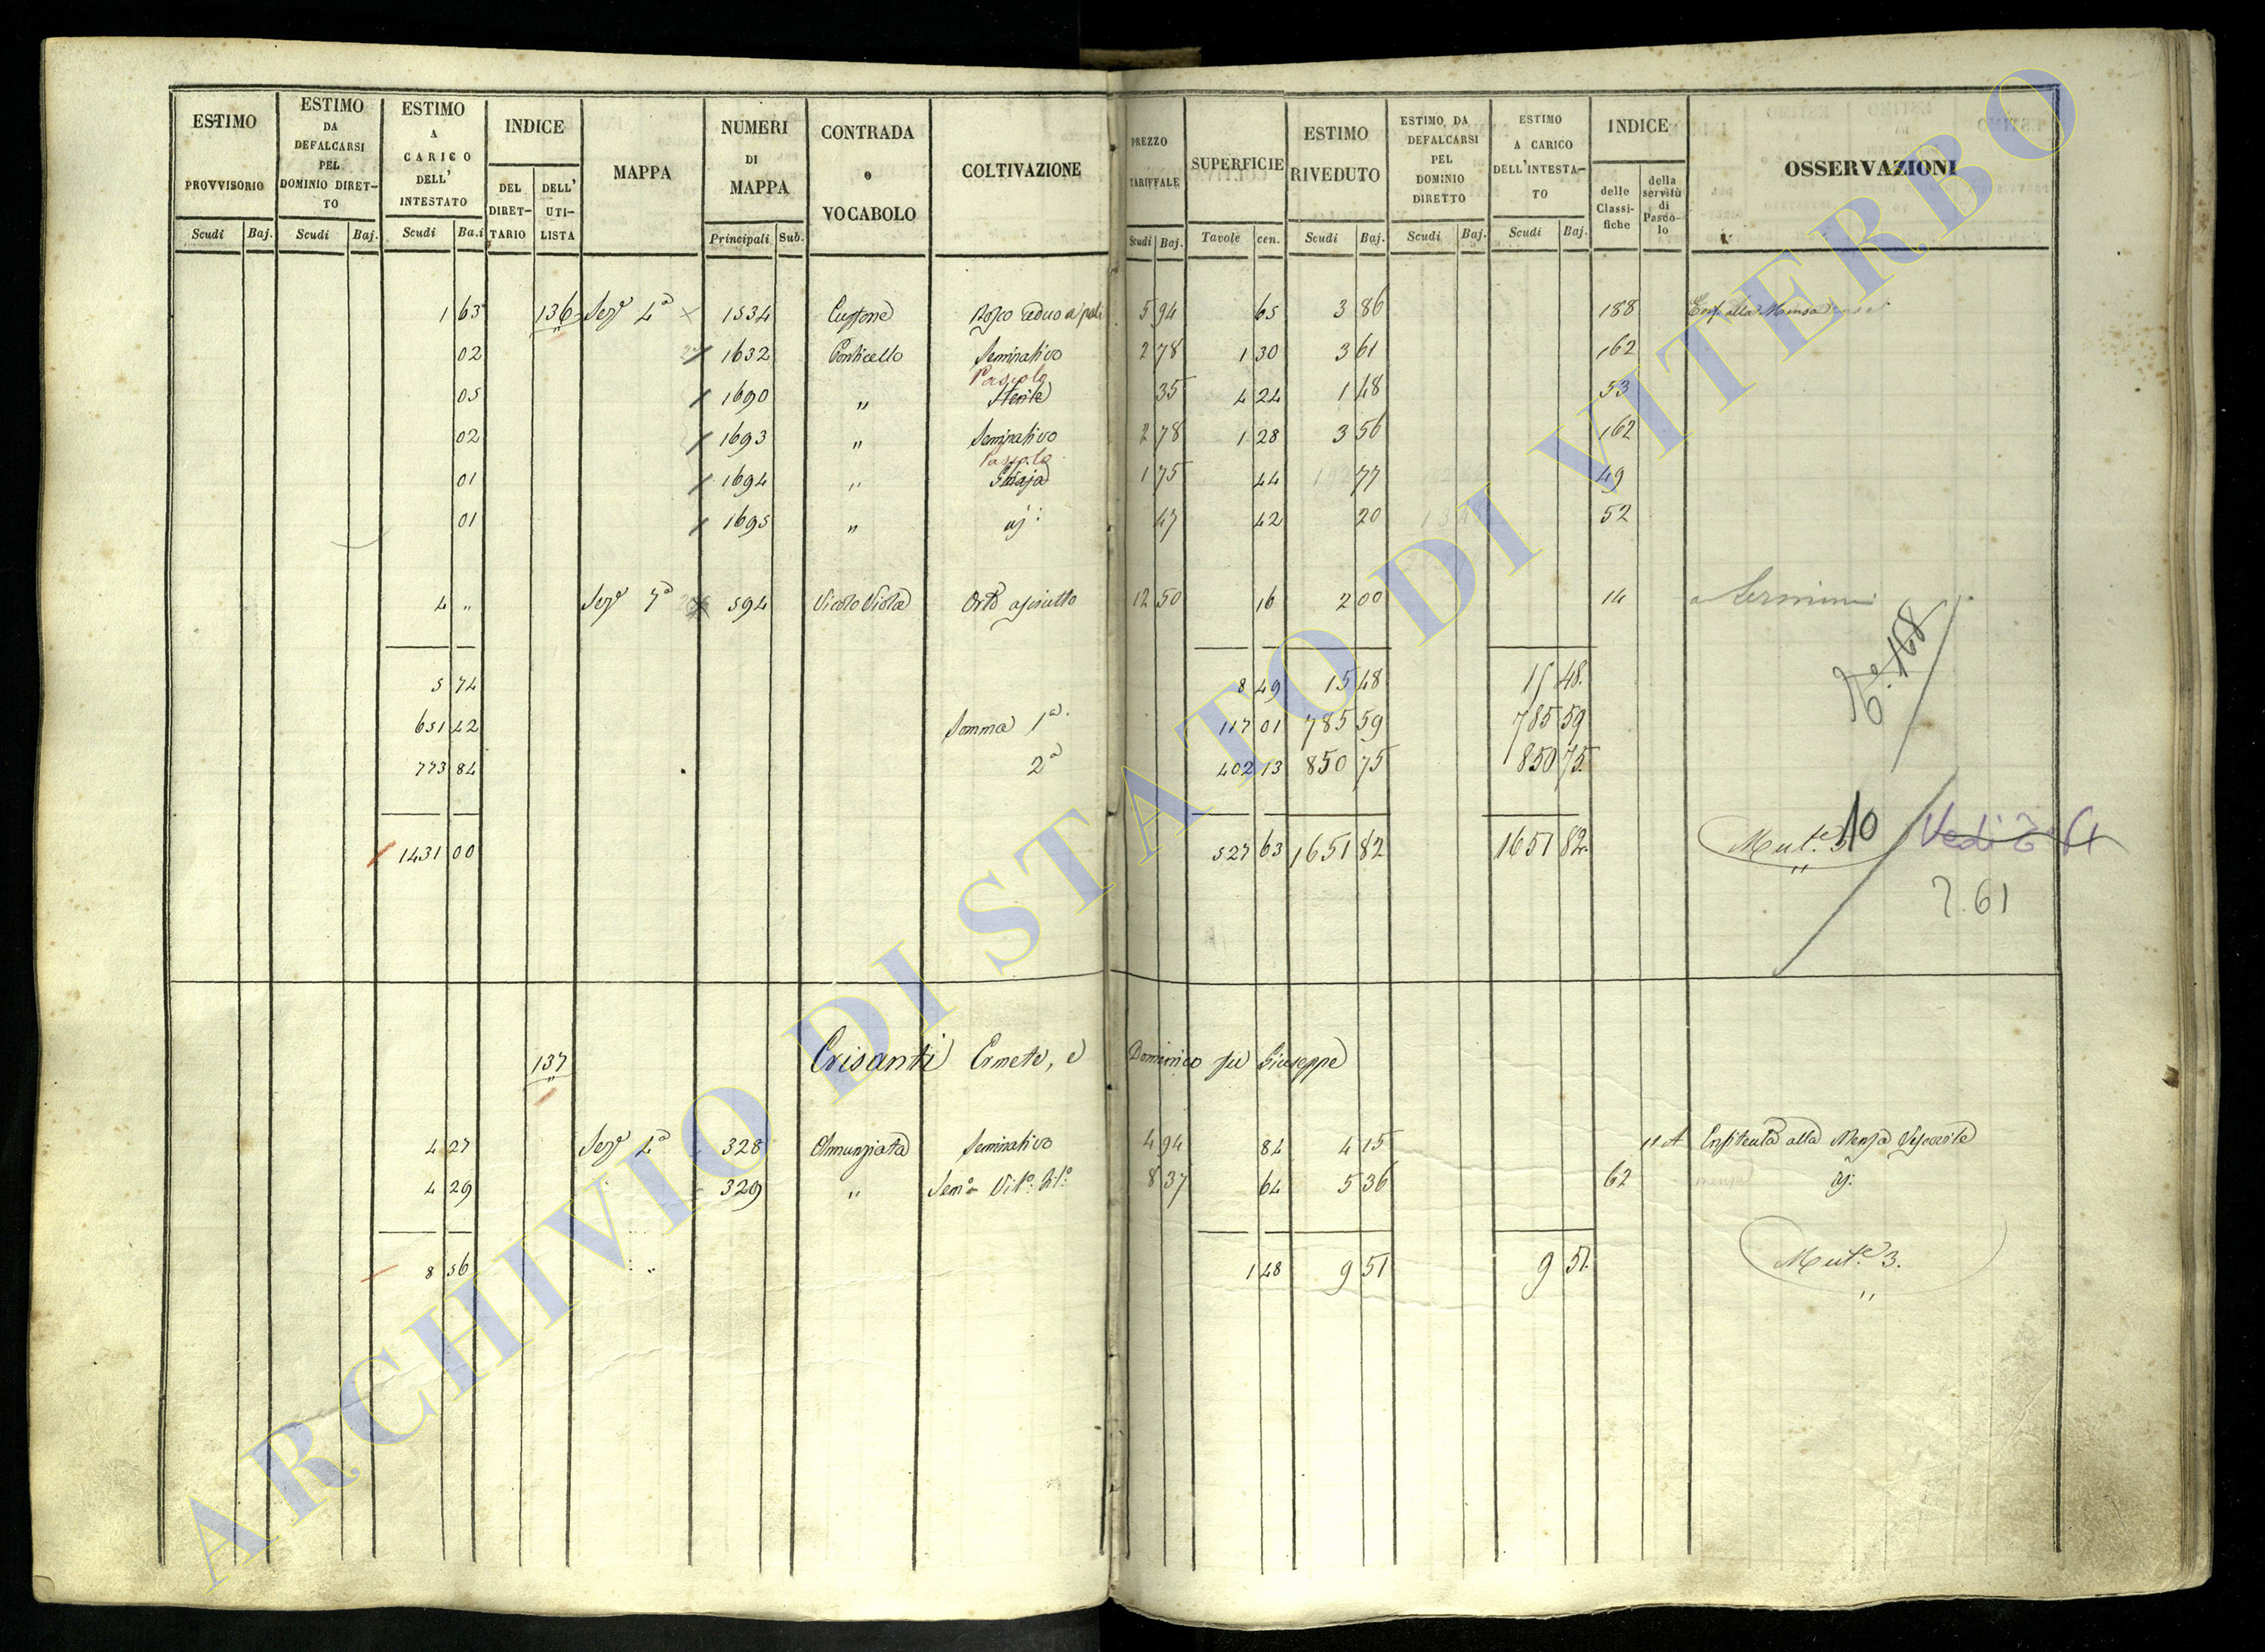 ESTIMO PROVVISORIO ESTIMO DA DEFALCARSI PEL DOMINIO DIRETTO ESTIMO A CARICO DELL' INTESTATO INDICE DEL DIRETTARIO DELL' UTILISTA MAPPA NUMERI DI MAPPA CONTRADA o VOCABOLO COLTIVAZIONE PREZZO TARIFFALE SUPERFICIE ESTIMO RIVEDUTO ESTIMO DA DEFALCARSI PEL DOMINIO DIRETTO ESTIMO A CARICO DELL'INTESTATO INDICE delle Classifiche della servitù di Pascolo OSSERVAZIONI
Scudi Baj. Scudi Baj. Scudi Ba.i Principali Sub. Scudi Baj. Tavole cen. Scudi Baj. Scudi Baj. Scudi Baj.
1 63 136 Sez.e 4a 1534 Bosco ceduo a pali 5 94 65 3 86 188 Enf. alla Mensa
02 1632 Ponticello Seminativo 2 78 1 30 3 61 162
Pascolo
05 1690 " Sterile 35 4 24 1 48 53
02 1693 " Seminativo 2 78 1 28 3 56 162
Pascolo
01 1694 " 1 75 44 77 49
01 1695 " 47 42 20 52
4 " Sez.e 7a 594 Vicolo Viola Orto asciutto 12 50 16 2 00 14
168
5 74 8 49 15 48 15 48.
651 42 Somma 1a 117 01 785 59 785 59
773 84 2a 402 13 850 75 850 75.
1431 00 527 63 1651 82 1651 82. Mut.e 10 Vedi
61
137 Crisanti Ermete, e Domenico fu Giuseppe
4 27 Sez.e 4a 328 Annunziata Seminativo 4 94 84 4 15 11 A Enfiteuta alla Mensa Vescovile
4 29 329 " Sem.o Vit.o 8 37 64 5 36 62
8 56 1 48 9 51 9 51. Mut.e 3.
ARCHIVIO DI STATO DI VITERBO